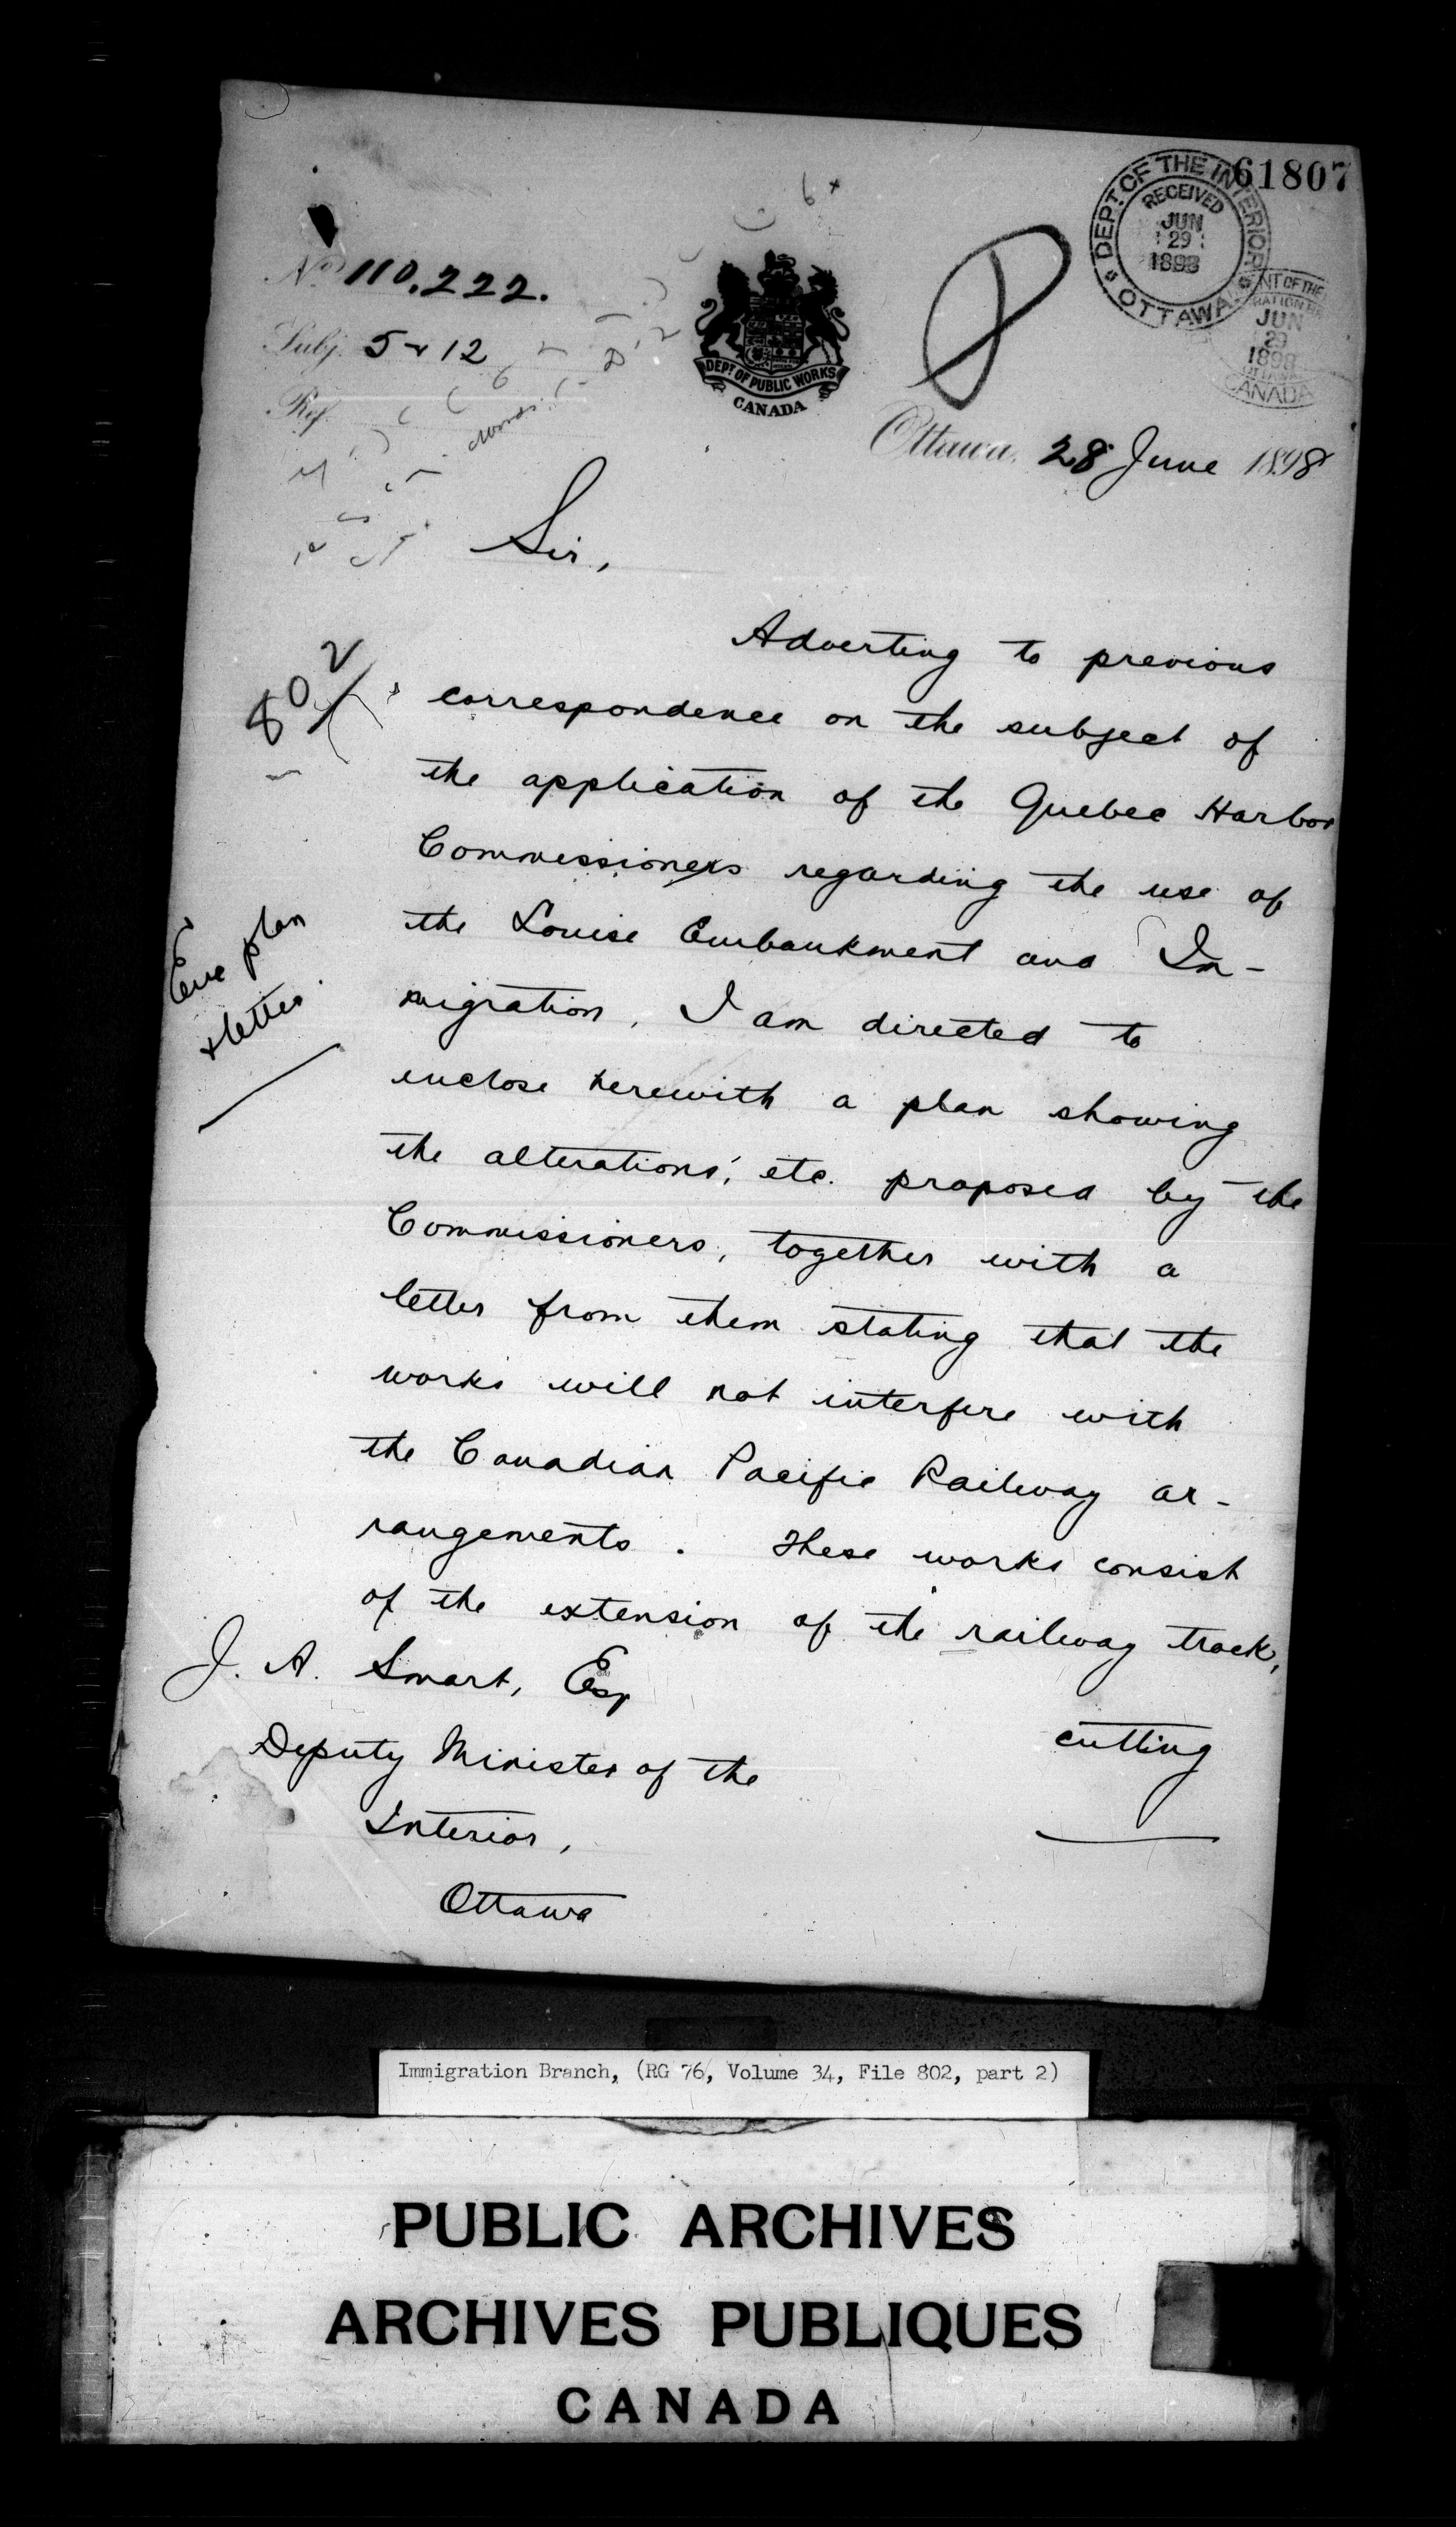 61807
DEPT. OF THE INTERIOR
RECEIVED
JUN
29
1898
OTTAWA
JUN
29
1898
CANADA
No. 110.222.
Subj. 5 & 12
Ref.
DEPT. OF PUBLIC WORKS
CANADA
Ottawa, 28 June 1898
Sir,
802
Adverting to previous
correspondence on the subject of
the application of the Quebec Harbor
Commissioners regarding the use of
the Louise Embankment and Im-
migration, I am directed to
enclose herewith a plan showing
the alterations, etc. proposed by the
Commissioners, together with a
letter from them stating that the
works will not interfere with
the Canadian Pacific Railway ar-
rangements. These works consist
of the extension of the railway track,
cutting
plan
& letter.
J. A. Smart, Esq
Deputy Minister of the
Interior,
Ottawa
Immigration Branch, (RG 76, Volume 34, File 802, part 2)
PUBLIC ARCHIVES
ARCHIVES PUBLIQUES
CANADA